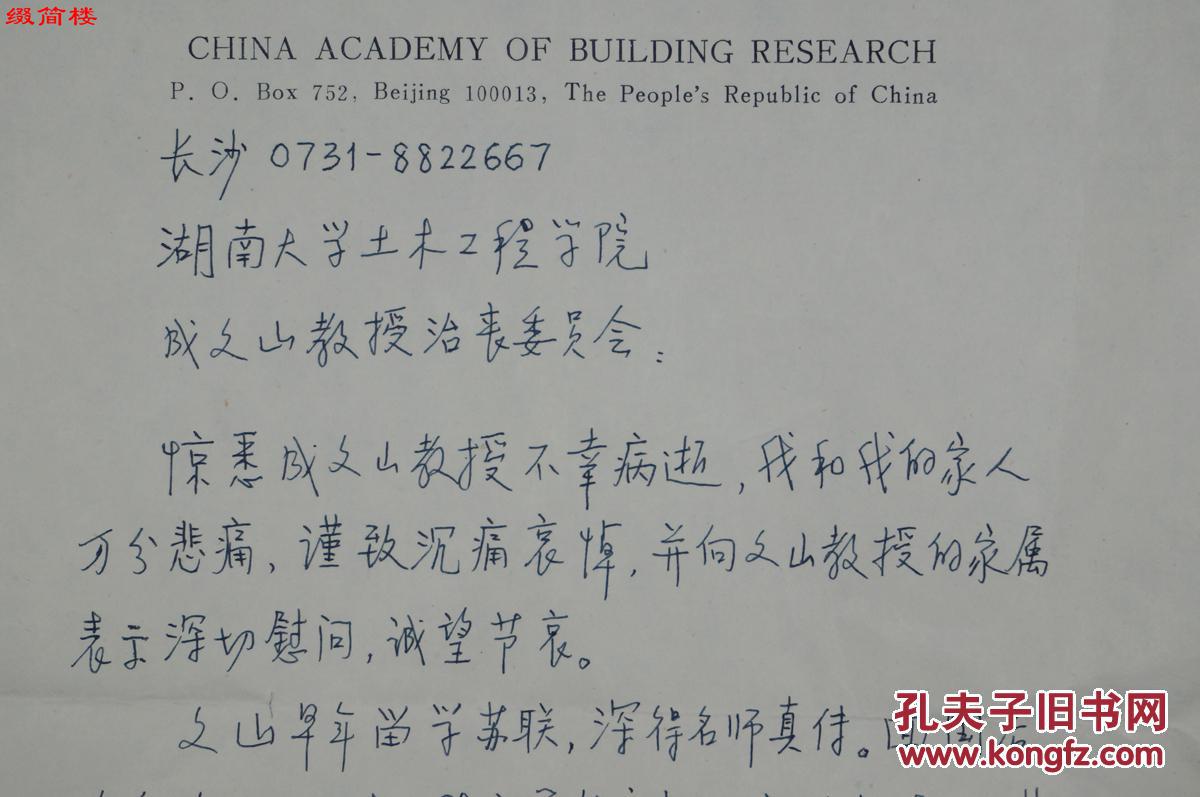 缀简楼
CHINA ACADEMY OF BUILDING RESEARCH
P. O. Box 752, Beijing 100013, The People's Republic of China
长沙 0731-8822667
湖南大学土木工程学院
成文山教授治丧委员会：
惊悉成文山教授不幸病逝，我和我的家人
万分悲痛，谨致沉痛哀悼，并向文山教授的家属
表示深切慰问，诚望节哀。
文山早年留学苏联，深得名师真传。回国后
孔夫子旧书网
www.kongfz.com